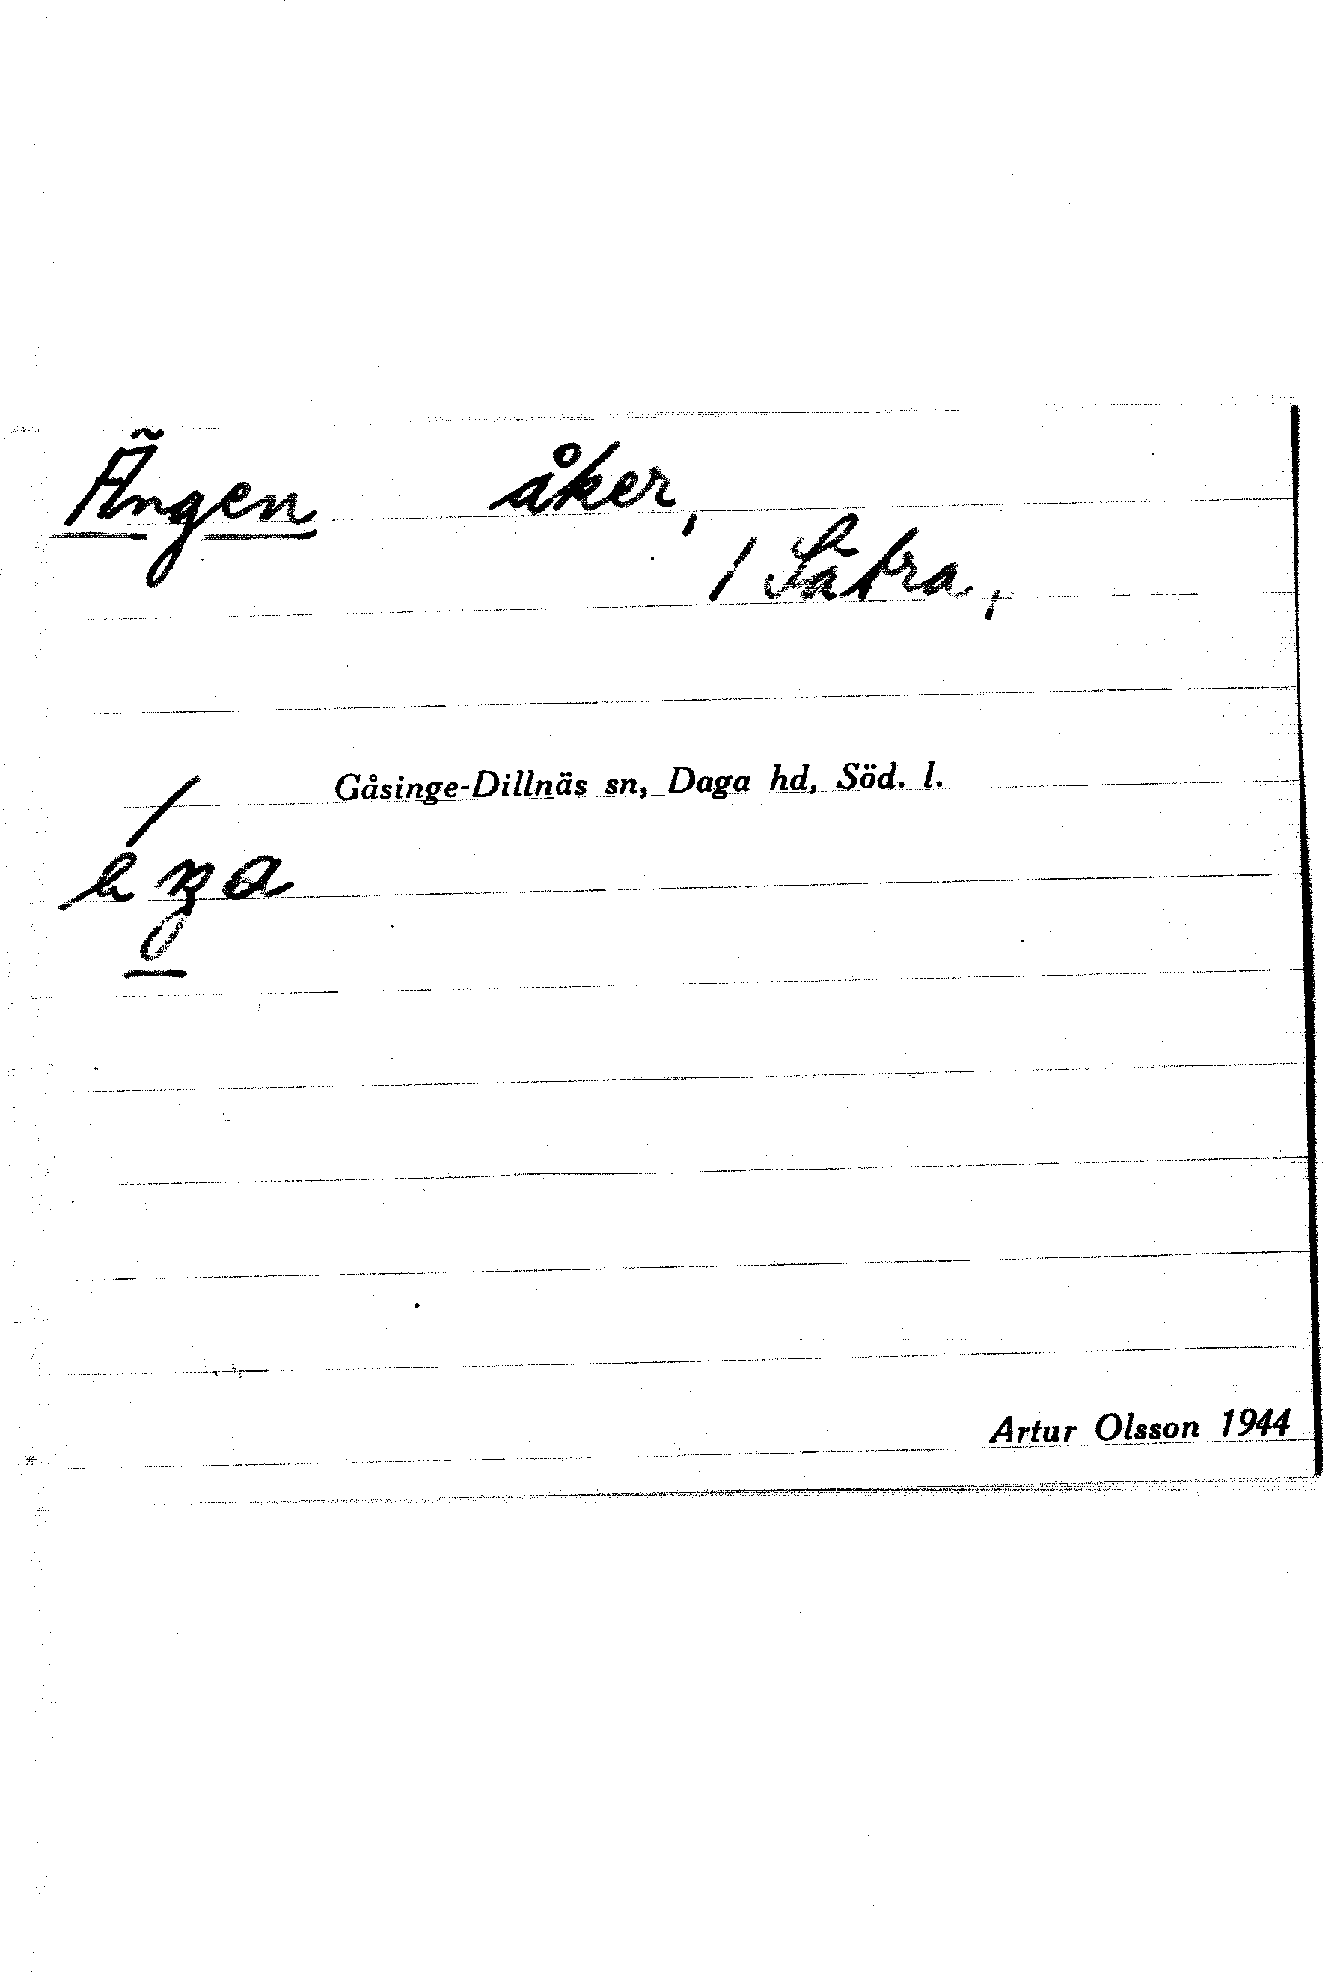 Ängen åker,
1 Sätra,
Gåsinge-Dillnäs sn, Daga hd, Söd. l.
Artur Olsson 1944